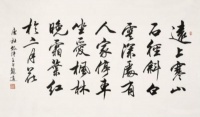 遠上寒山
石徑斜白
雲深處有
人家停車
坐愛楓林
晚霜葉紅
於二月花